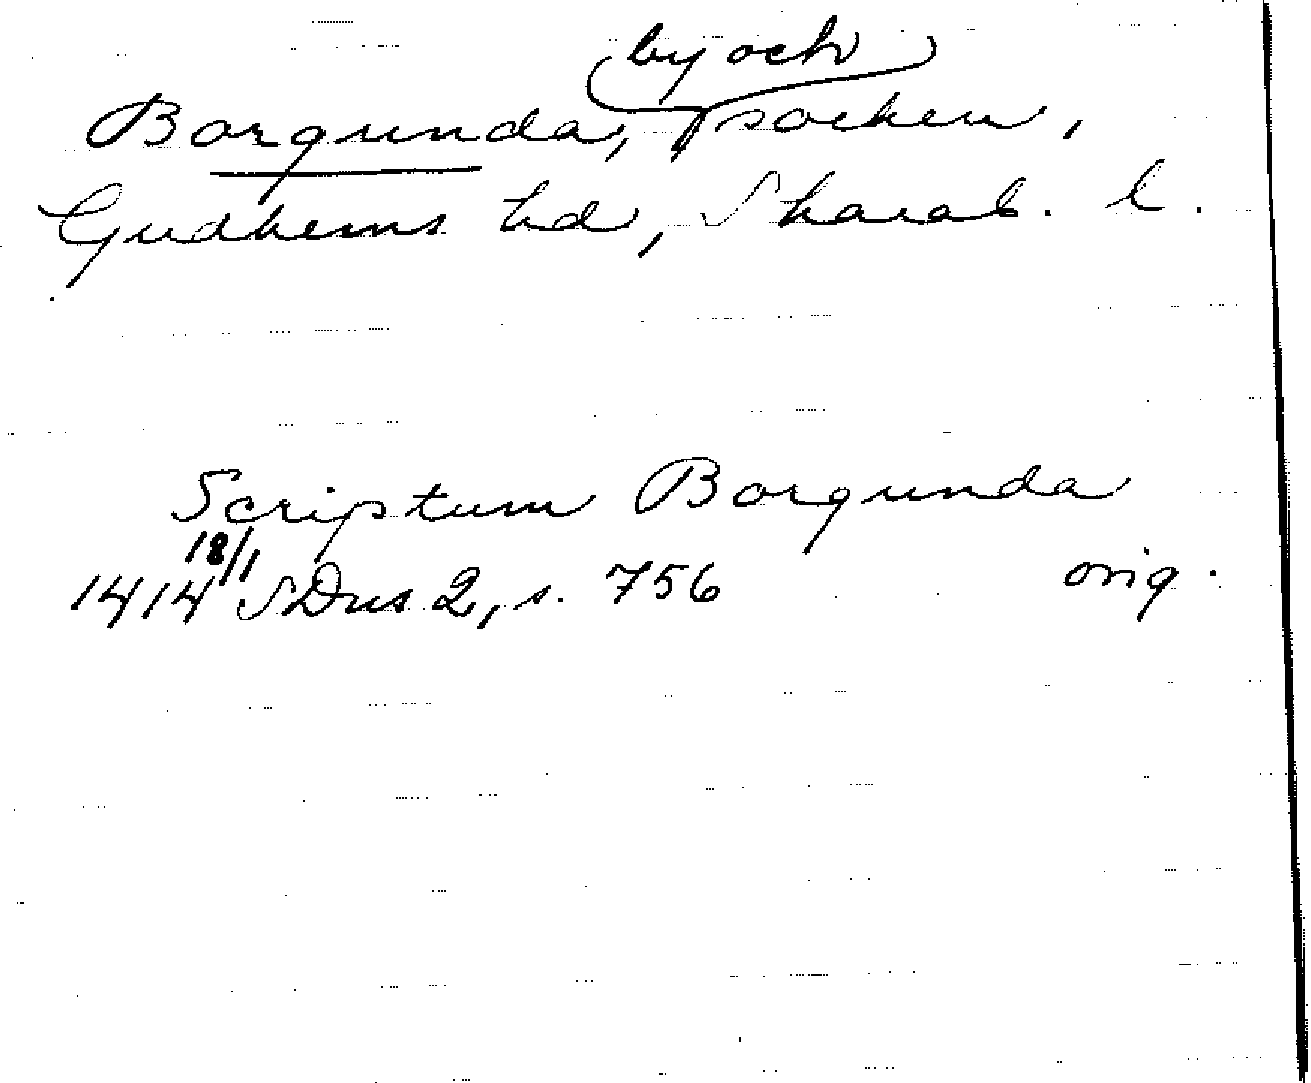 by och
Borgunda, socken,
Gudhems hd, Skarab. l.
Scriptum Borgunda
18/1
1414 SDns 2, s. 756 orig.